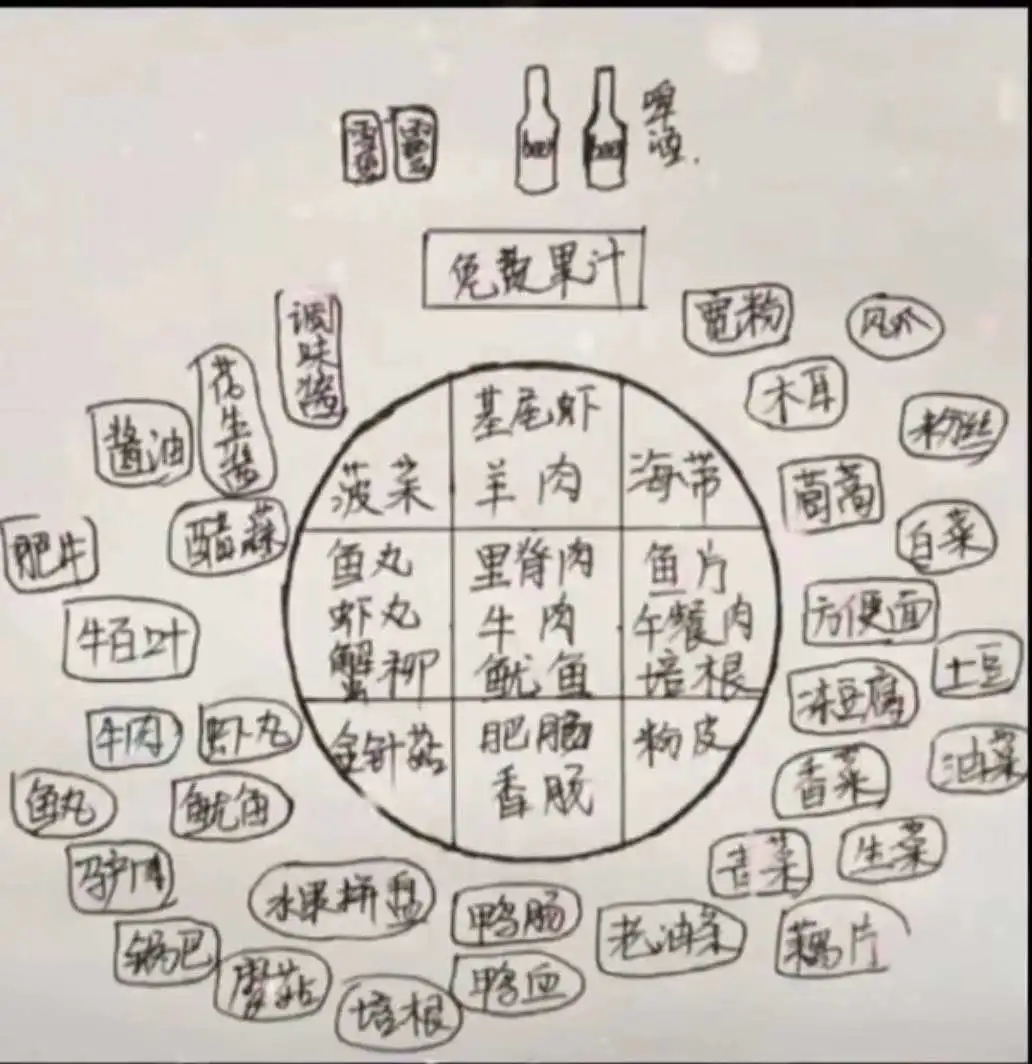 雪碧
雪碧
beer
beer
啤酒.
免费果汁
调味酱
花生酱
酱油
醋蒜
宽粉
凤爪
木耳
粉丝
茼蒿
白菜
肥牛
牛百叶
方便面
土豆
冻豆腐
油菜
香菜
牛肉
虾丸
鱼丸
鱿鱼
驴肉
锅巴
蘑菇
水果拼盘
培根
鸭肠
鸭血
老油条
青菜
生菜
藕片
菠菜
基尾虾
羊肉
海带
鱼丸
虾丸
蟹柳
里脊肉
牛肉
鱿鱼
鱼片
午餐肉
培根
金针菇
肥肠
香肠
粉皮